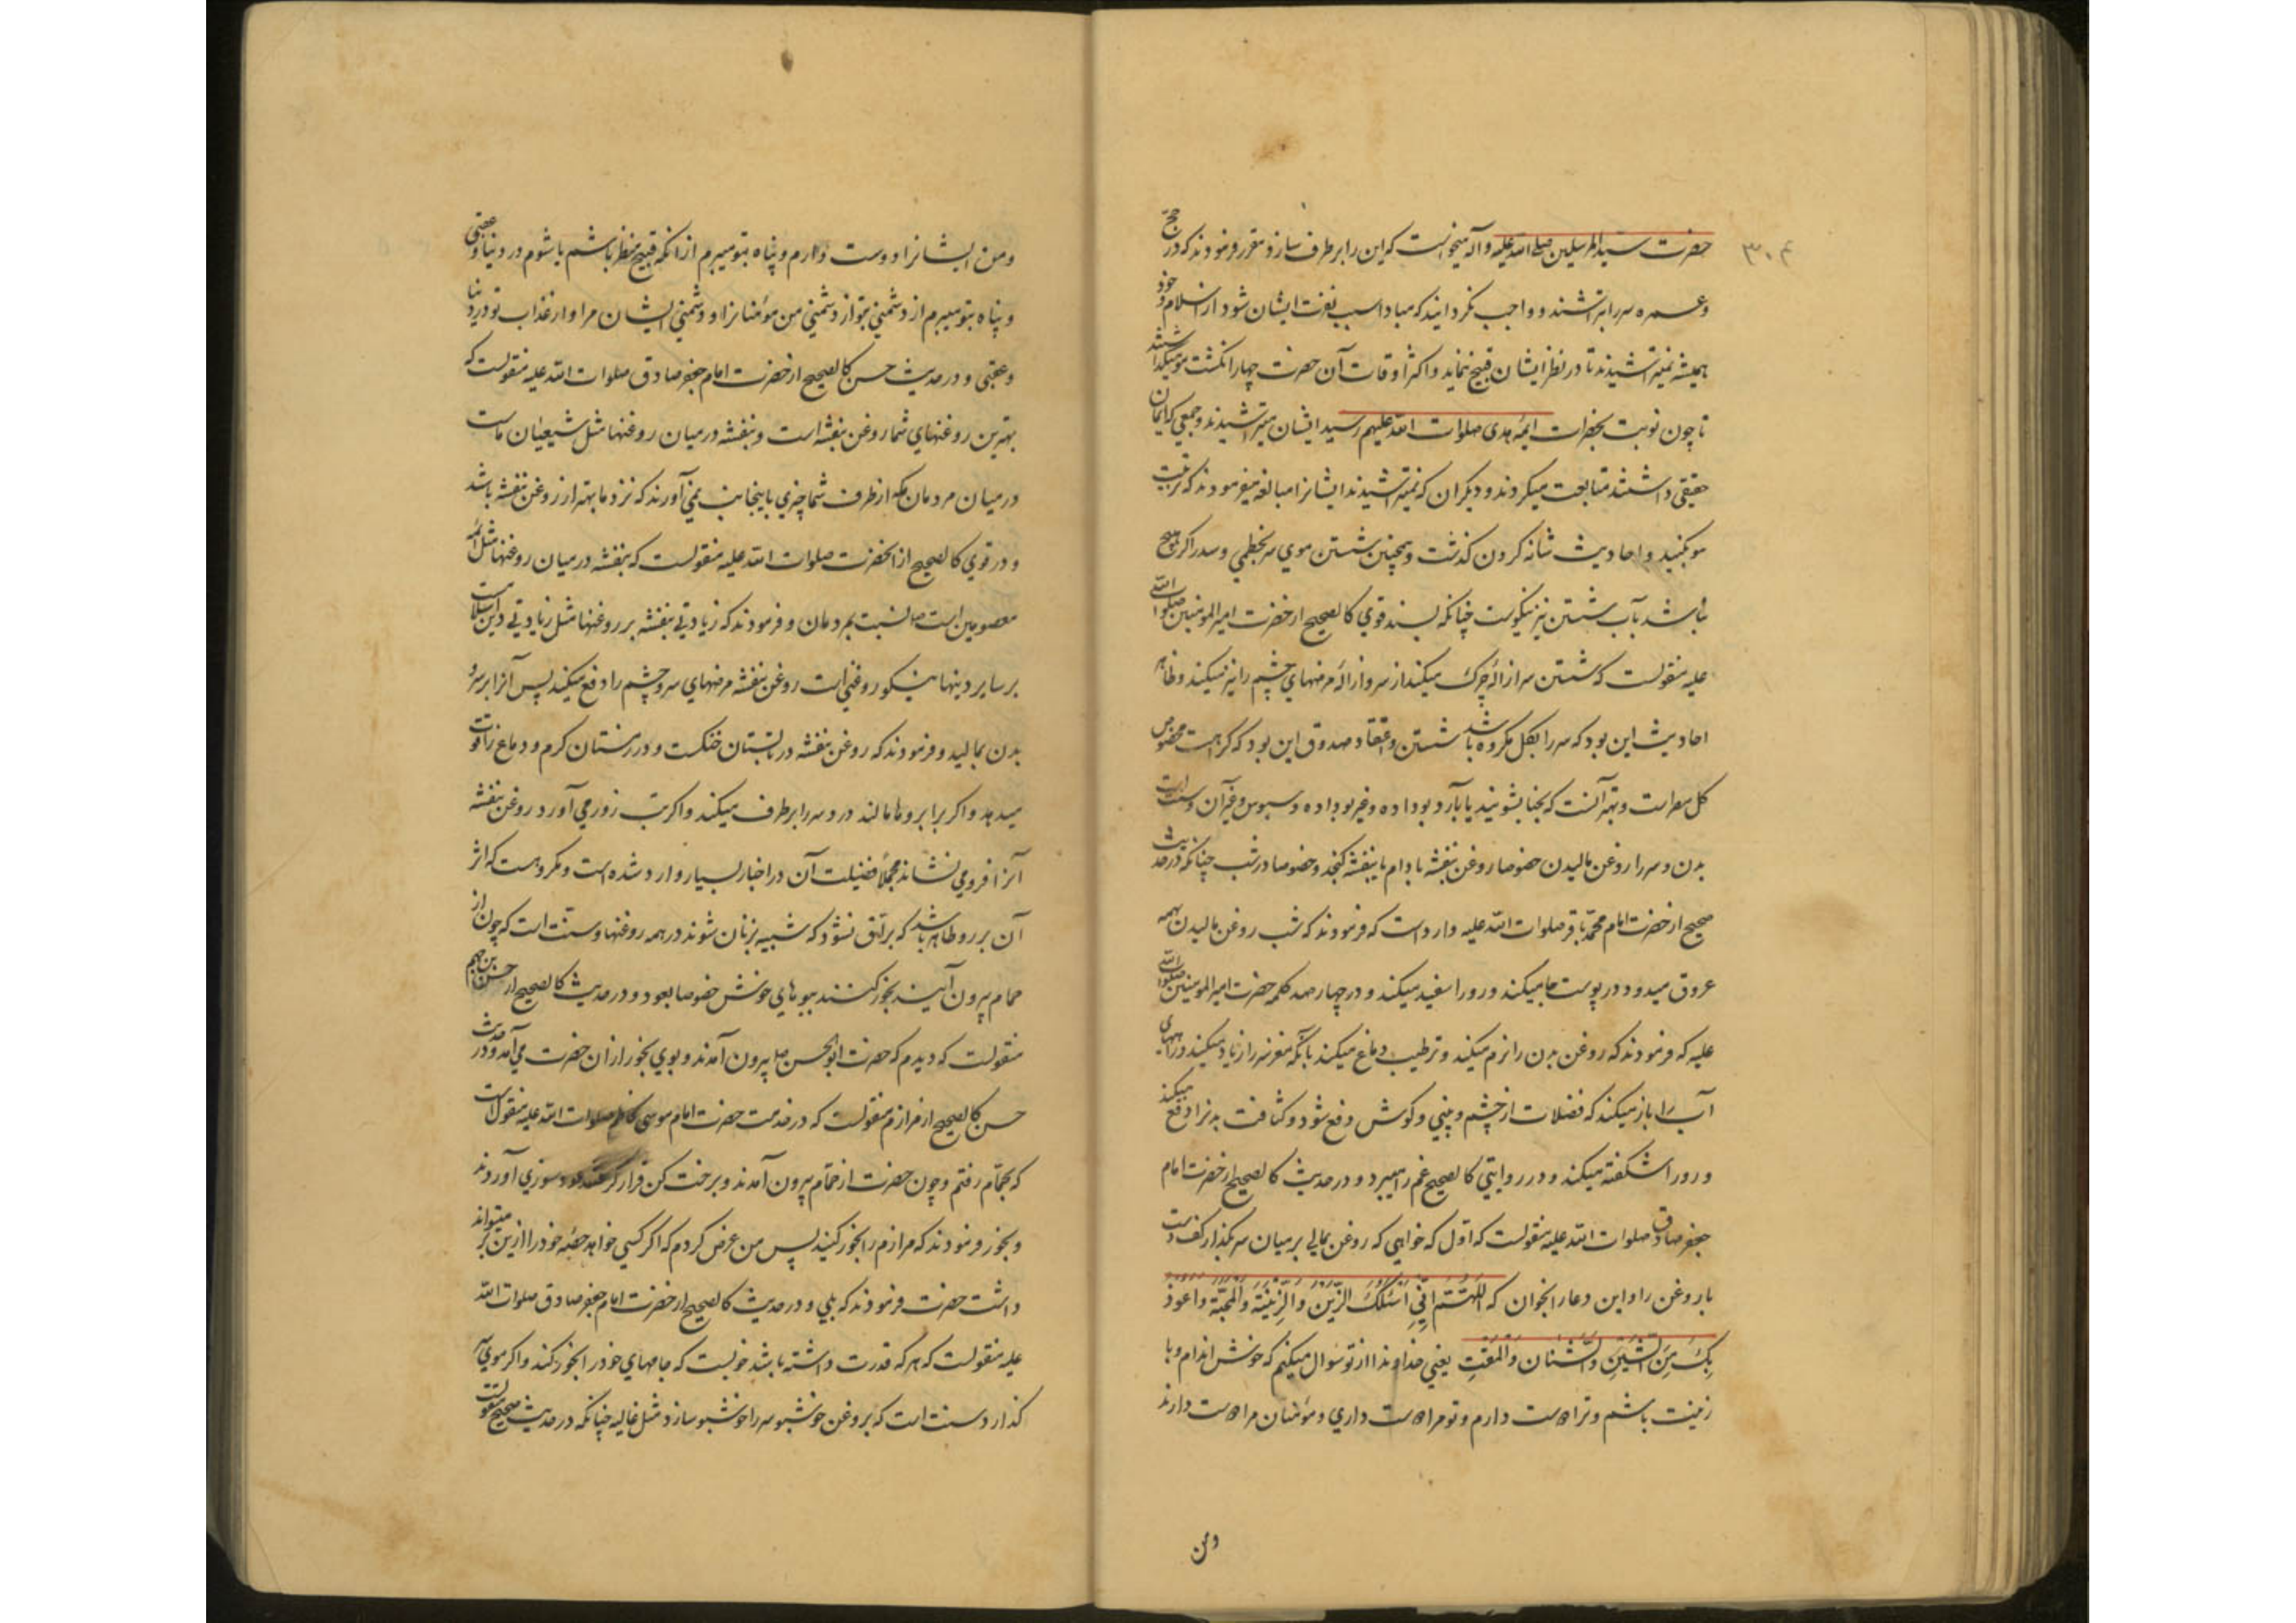 ۳۰۴
حضرت سید المرسلین صلی الله علیه و آله میخواست که این را برطرف سازد مقرر فرمودند که در حج
و عمره سر را بتراشند و واجب نگردانیدند که مبادا سبب نفرت ایشان شود از اسلام و خود
همیشه نمیتراشیدند تا در نظر ایشان قبیح ننماید و اکثر اوقات آن حضرت چهار انکشت مو میکذاشتند
تا چون نوبت بحضرات ائمه هدی صلوات الله علیهم رسید ایشان میتراشیدند و جمعی که ایمان
حقیقی داشتند متابعت میکردند و دیکران که نمیتراشیدند ایشانرا مبالغه میفرمودند که تربیت
مو بکنید و احادیث شانه کردن کذشت و همچنین شستن موی سر بخطمی و سدر اکر هیچ
نباشد بآب شستن نیز نیکوست چنانکه بسند قوی کالصحیح از حضرت امیر المومنین صلوات الله
علیه منقولست که شستن سر ازاله چرک میکند از سر و ازاله مرضهای چشم را نیز میکند و ظاهر
احادیث این بود که سر را بکل مکروه باشد شستن و اعتقاد صدوق این بود که کراهت مخصوص
کل مصر است و بهتر آنست که بحنا بشویند یا بآرد بو داده و غیر بو داده و سبوس و غیر آن و سنت است
بدن و سر را روغن مالیدن خصوصا روغن بنفشه بادام یا بنفشه کنجد و خصوصا در شب چنانکه در حدیث
صحیح از حضرت امام محمد باقر صلوات الله علیه وارد است که فرمودند که شب روغن مالیدن بهمه
عروق میدود و در پوست جا میکند و رو را سفید میکند و در چهار صد کلمه حضرت امیر المومنین صلوات الله
علیه که فرمودند که روغن بدن را نرم میکند و ترطیب دماغ میکند بآنکه مغز سر را زیاد میکند و راههای
آب را باز میکند که فضلات از چشم و بینی و کوش دفع شود و کثافت بدنرا دفع میکند
و رو را شکفته میکند و در روایتی کالصحیح غم را میبرد و در حدیث کالصحیح از حضرت امام
جعفر صادق صلوات الله علیه منقولست که اول که خواهی که روغن بمالی بر میان سر بکذار کف دست
با روغن را و این دعا را بخوان که اَللّهُمَّ اِنّی اَسئَلُکَ الزَّینَ وَ الزِّینَةَ وَ الْمَحَبَّةَ وَ اَعوذُ
بِکَ مِنَ الشَّینِ وَ الشَّنَانِ وَ الْمَقتِ یعنی خداوندا از تو سوال میکنم که خوش اندام و با
زینت باشم و ترا دوست دارم و تو مرا دوست داری و مؤمنان مرا دوست دارند
ومن
ومن ایشانرا دوست دارم و پناه بتو میبرم از آنکه قبیح منظر باشم یا شوم در دنیا و عقبی
و پناه بتو میبرم از دشمنی بتو از دشمنی من مومنانرا و دشمنی ایشان مرا و از عذاب تو در دنیا
و عقبی و در حدیث حسن کالصحیح از حضرت امام جعفر صادق صلوات الله علیه منقولست که
بهترین روغنهای شما روغن بنفشه است و بنفشه در میان روغنها مثل شیعیان ماست
در میان مردمان مکه از طرف شما چیزی باینجانب نمی آورند که نزد ما بهتر از روغن بنفشه باشد
و در قوی کالصحیح از انحضرت صلوات الله علیه منقولست که بنفشه در میان روغنها مثل ائمه
معصومین است نسبت بمردمان و فرمودند که زیادتی بنفشه بر روغنها مثل زیادتی دین اسلامست
بر سایر دینها نیکو روغنی است روغن بنفشه مرضهای سر و چشم را دفع میکند پس آنرا بر سر و
بدن بمالید و فرمودند که روغن بنفشه در تابستان خنکست و در زمستان کرم و دماغ را قوت
میدهد و اکر برابر وها مالند درد سر را برطرف میکند و اکر تب زور می آورد روغن بنفشه
آنرا فرو می نشاند مجملا فضیلت آن در اخبار بسیار وارد شده است و مکروهست که اثر
آن بر رو ظاهر باشد که براق نشود که شبیه بزنان شوند در همه روغنها و سنت است که چون از
حمام بیرون آیند بخور کنند ببوهای خوش خصوصا بعود و در حدیث کالصحیح از حسن بن جهم
منقولست که دیدم که حضرت ابوالحسن بیرون آمدند و بوی بخور از ان حضرت می آمد و در حدیث
حسن کالصحیح از مرازم منقولست که در خدمت حضرت امام موسی کاظم صلوات الله علیه منقول است
که بحمام رفتم و چون حضرت از حمام بیرون آمدند و برخت کن قرار کرفتند عود سوزی آوردند
و بخور فرمودند که مرازم را بخور کنید پس من عرض کردم که اکر کسی خواهد حصه خود را ازین میتواند بر
داشت حضرت فرمودند که بلی و در حدیث کالصحیح از حضرت امام جعفر صادق صلوات الله
علیه منقولست که هر که قدرت داشته باشد خوبست که جامهای خود را بخور کند و اکر موی سر
کذارد سنت است که بروغن خوشبو سر را خوشبو سازد مثل غالیه چنانکه در حدیث صحیح منقولست